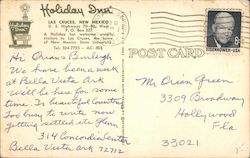 Holiday Inn
LAS CRUCES, NEW MEXICO
U. S. Highways 70-80, West
P. O. Box
A Holiday Inn welcome awaits
visitors to Las Cruces.
of New Mexico State University.
Tel. 524-7733 - AC 505
POST CARD
EISENHOWER·USA
Hi Orin Burleigh
We have been a week
at Bella Vista
Will be here for some
time. In beautiful Country.
Too busy to write now
getting settled in
314 Concordia Center
Bella Vista ark 72712
Mr Orin Green
3309 Broadway
Hollywood
Fla
33021